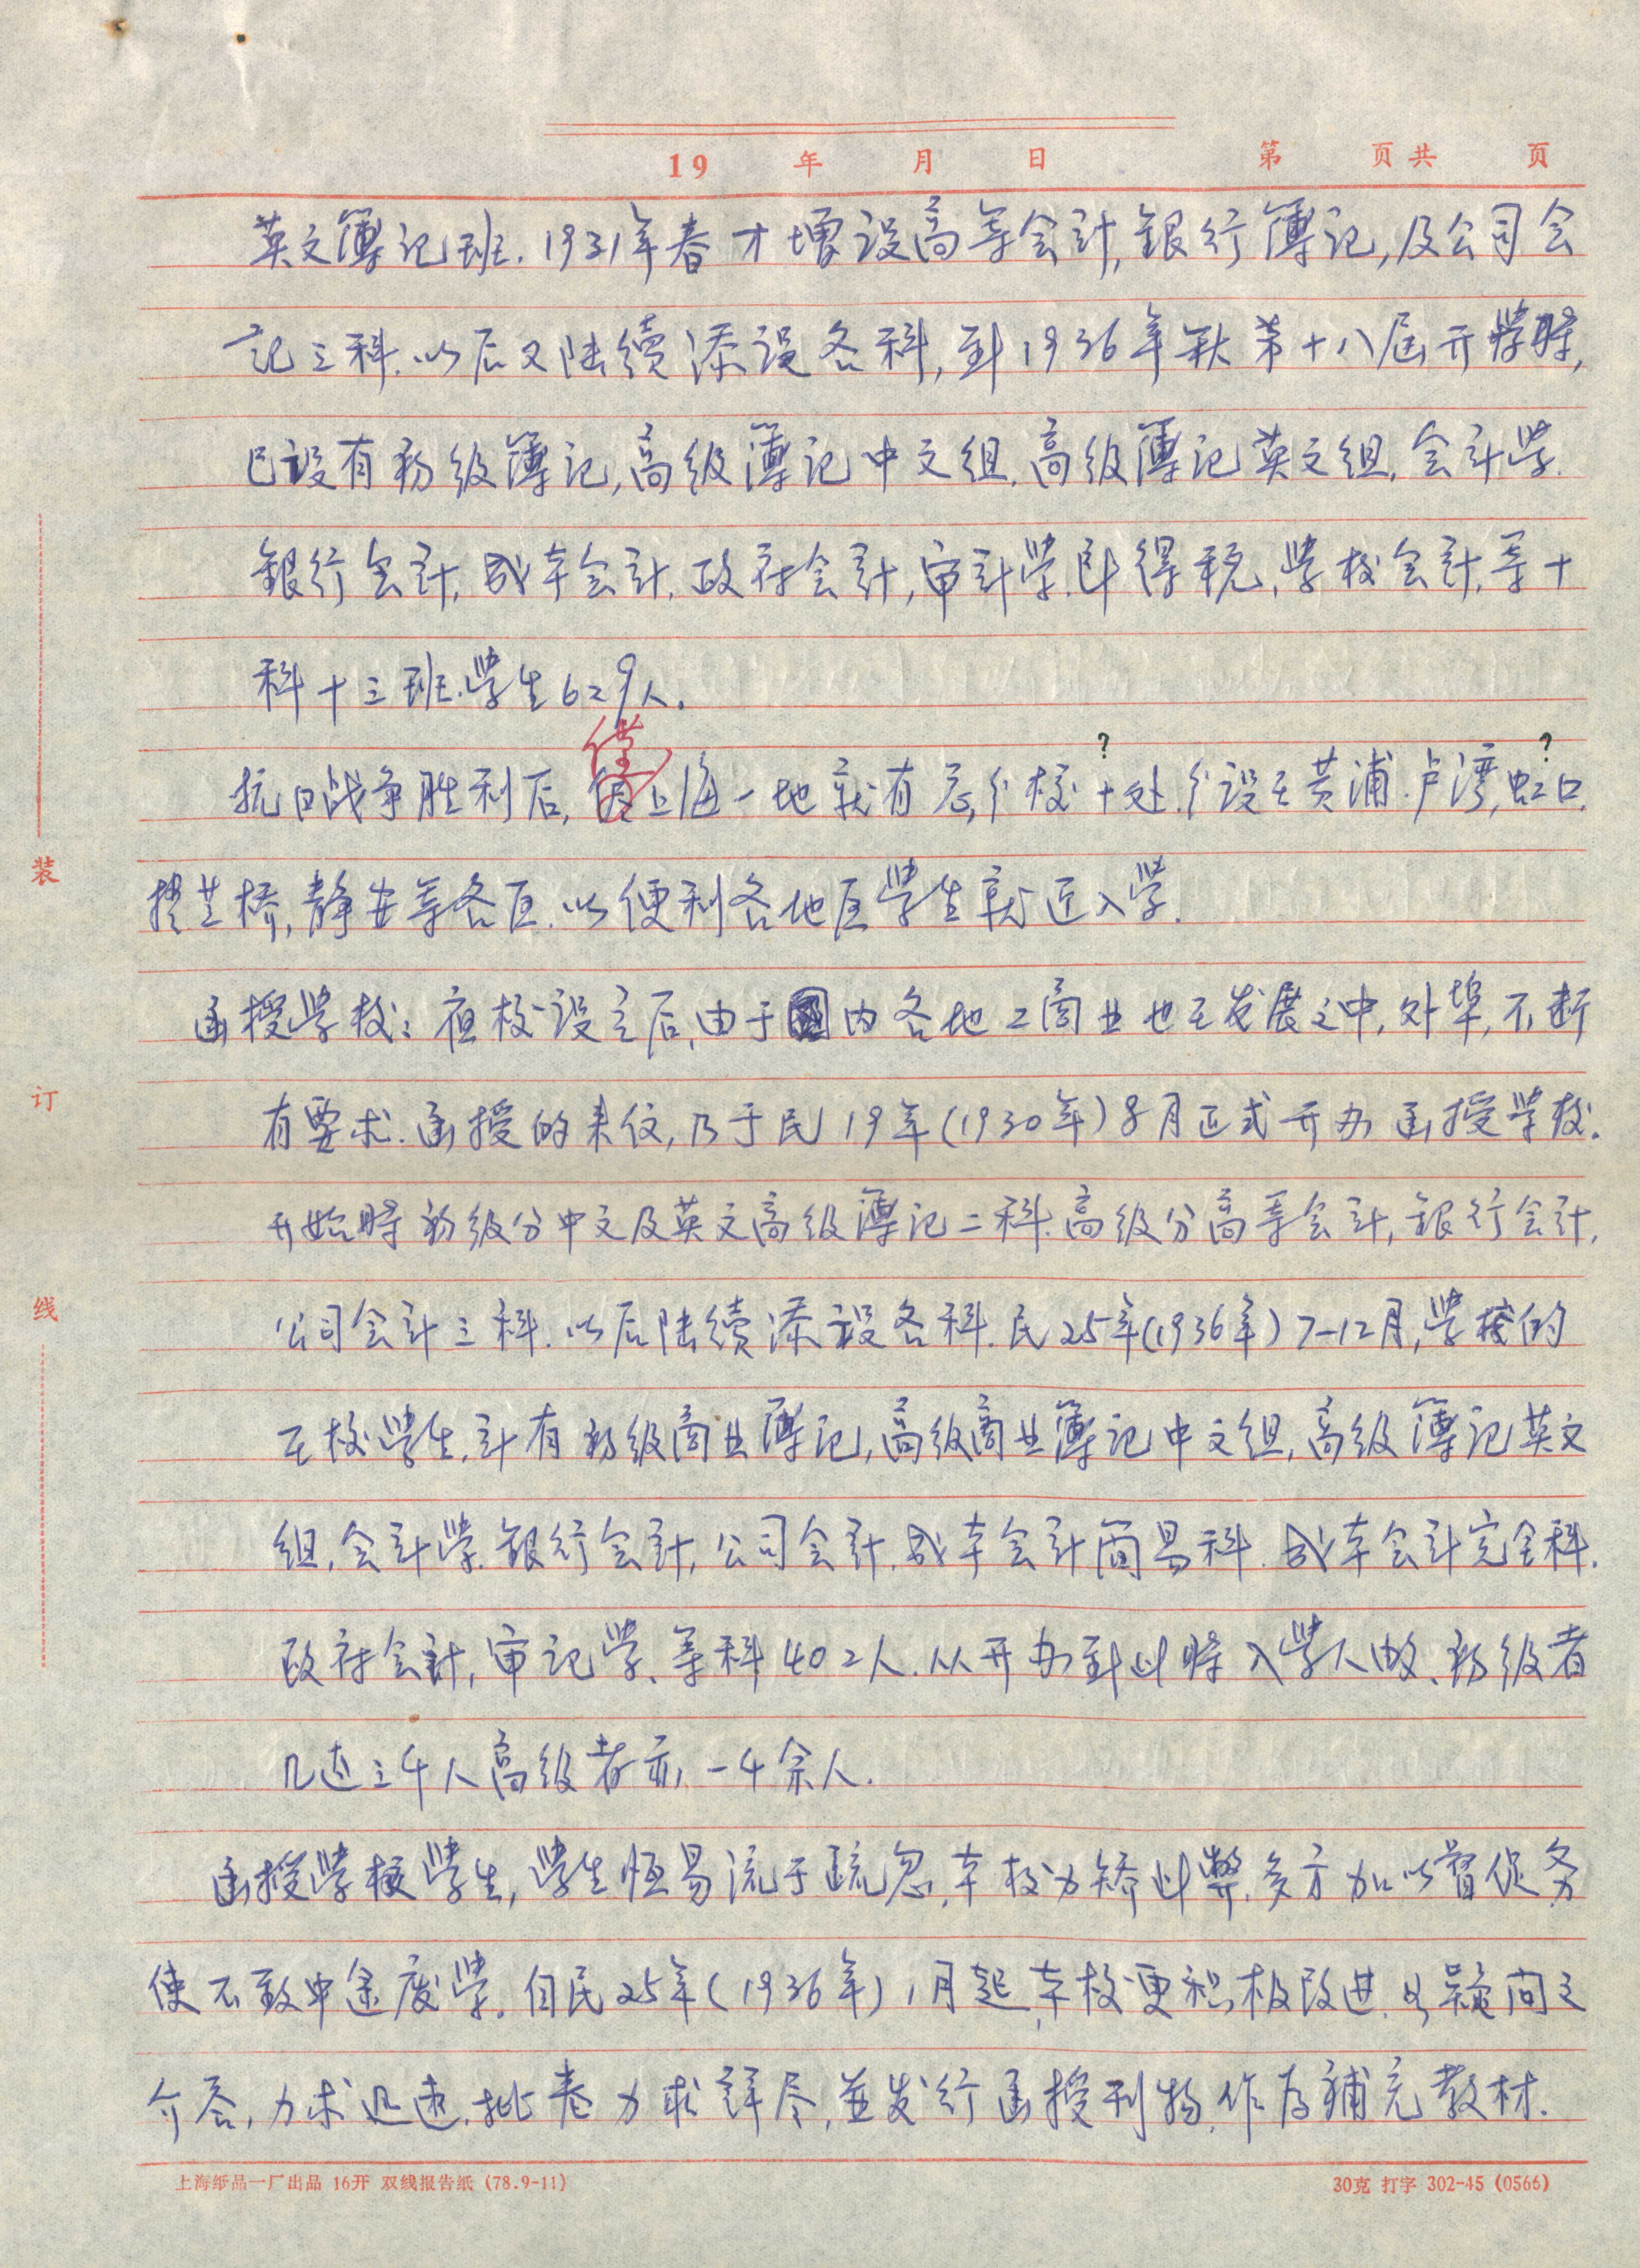 19 年 月 日 第 页共 页
英文簿记班.1931年春才增设高等会計,銀行簿记,及公司会
記三科.以后又陆續添设各科,到1936年秋第十八届开学時,
已設有初级簿记,高级簿记中文组.高级簿记英文组.会計学.
銀行会計,成本会計.政府会計,审計学.所得税,学校会計.等十
科十三班.学生629人.
抗日战争胜利后,僅上海一地就有总,分校十处.分设在黄浦.卢湾,虹口.
? ?
提芝桥,静安等各区.以便利各地区学生就近入学.
函授学校:夜校设立后,由于国内各地工商业也在发展之中,外埠,不断
有要求.函授的来信,乃于民19年(1930年)8月正式开办函授学校.
开始時初级分中文及英文高级簿记二科.高级分高等会計,銀行会計,
公司会計三科.以后陆續添設各科.民25年(1936年)7-12月,学校的
在校学生.計有初级商业簿记,高级商业簿记中文组,高级簿记英文
组,会計学.銀行会計,公司会計.成本会計简易科.成本会計完全科.
政府会計,审记学、等科402人.从开办到此時入学人数、初级者
几近三千人高级者亦一千余人.
函授学校学生,学生恒易流于疏忽,本校为矯此弊.多方加以督促务
使不致中途废学.自民25年(1936年)1月起,本校更积极改进.如疑问之
介答,力求迅速.批卷力求詳尽,並发行函授刊物,作为補充教材.
装
订
线
上海纸品一厂出品 16开 双线报告纸 (78.9-11)
30克 打字 302-45 (0566)